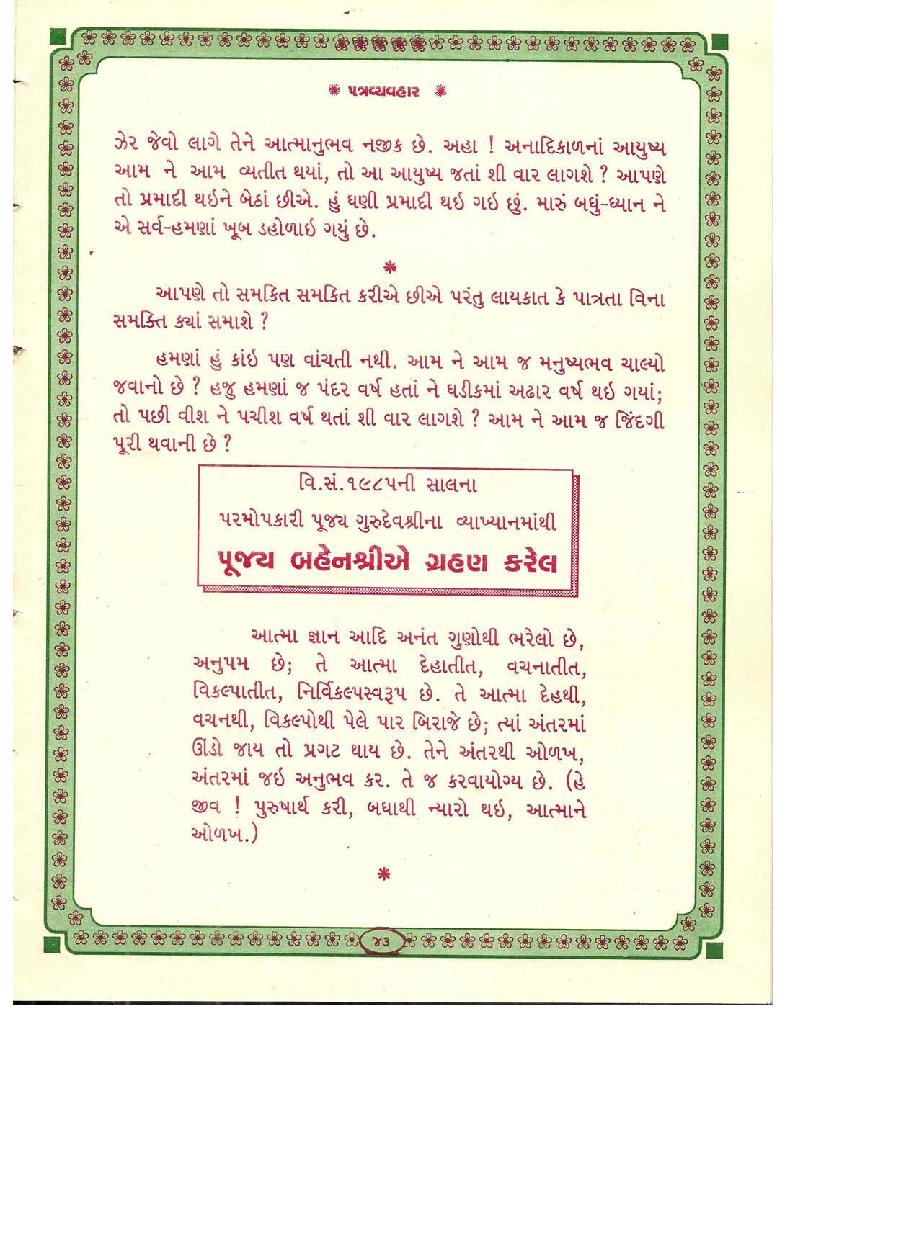 * પત્રવ્યવહાર *
ઝેર જેવો લાગે તેને આત્માનુભવ નજીક છે. અહા ! અનાદિકાળનાં આયુષ્ય
આમ ને આમ વ્યતીત થયાં, તો આ આયુષ્ય જતાં શી વાર લાગશે ? આપણે
તો પ્રમાદી થઇને બેઠાં છીએ. હું ઘણી પ્રમાદી થઇ ગઇ છું. મારું બધું-ધ્યાન ને
એ સર્વ-હમણાં ખૂબ ડહોળાઇ ગયું છે.
*
આપણે તો સમકિત સમકિત કરીએ છીએ પરંતુ લાયકાત કે પાત્રતા વિના
સમક્તિ ક્યાં સમાશે ?
હમણાં હું કાંઇ પણ વાંચતી નથી. આમ ને આમ જ મનુષ્યભવ ચાલ્યો
જવાનો છે ? હજુ હમણાં જ પંદર વર્ષ હતાં ને ઘડીકમાં અઢાર વર્ષ થઇ ગયાં;
તો પછી વીશ ને પચીશ વર્ષ થતાં શી વાર લાગશે ? આમ ને આમ જ જિંદગી
પૂરી થવાની છે ?
વિ.સં.૧૯૮૫ની સાલના
પરમોપકારી પૂજ્ય ગુરુદેવશ્રીના વ્યાખ્યાનમાંથી
પૂજ્ય બહેનશ્રીએ ગ્રહણ કરેલ
આત્મા જ્ઞાન આદિ અનંત ગુણોથી ભરેલો છે,
અનુપમ છે; તે આત્મા દેહાતીત, વચનાતીત,
વિકલ્પાતીત, નિર્વિકલ્પસ્વરૂપ છે. તે આત્મા દેહથી,
વચનથી, વિકલ્પોથી પેલે પાર બિરાજે છે; ત્યાં અંતરમાં
ઊંડો જાય તો પ્રગટ થાય છે. તેને અંતરથી ઓળખ,
અંતરમાં જઇ અનુભવ કર. તે જ કરવાયોગ્ય છે. (હે
જીવ ! પુરુષાર્થ કરી, બધાથી ન્યારો થઇ, આત્માને
ઓળખ.)
*
૪૩